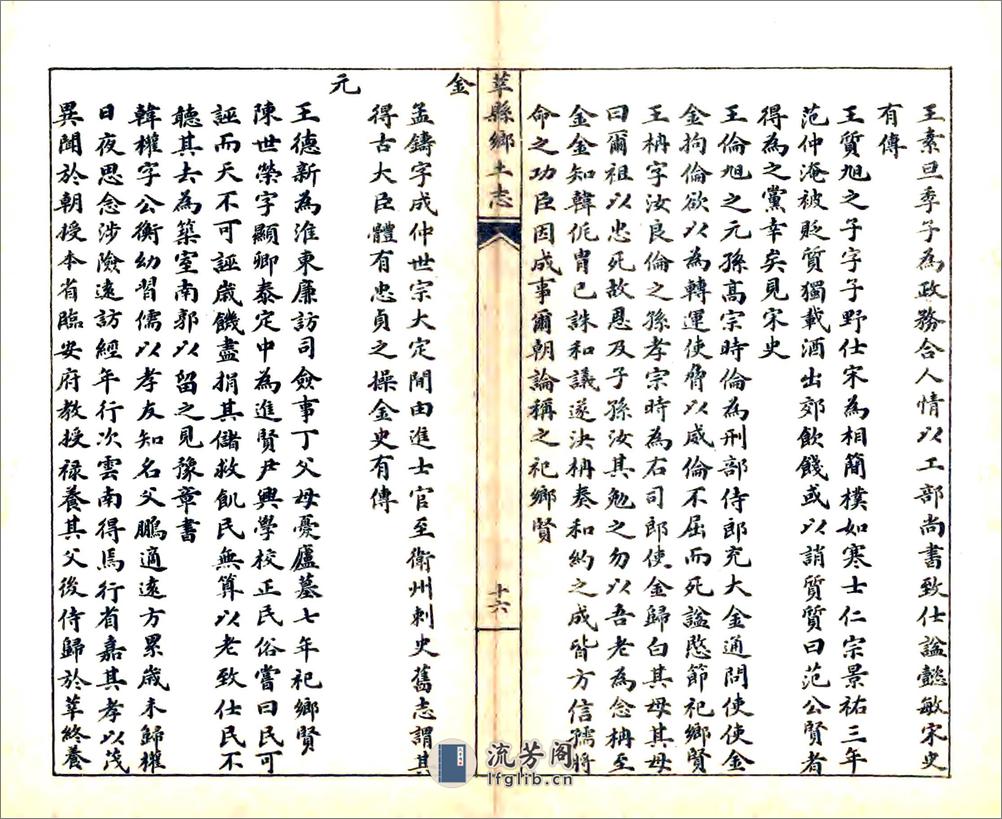 王素旦季子為政務合人情以工部尚書致仕謚懿敏宋史
有傳
王質旭之子字子野仕宋為相簡樸如寒士仁宗景祐三年
范仲淹被貶質獨載酒出郊飲餞或以誚質質曰范公賢者
得為之黨幸矣見宋史
王倫旭之元孫高宗時倫為刑部侍郎充大金通問使使金
金拘倫欲以為轉運使脅以威倫不屈而死謚愍節祀鄉賢
王柟字汝良倫之孫孝宗時為右司郎使金歸白其母其母
曰爾祖以忠死故恩及子孫汝其勉之勿以吾老為念柟至
金金知韓侂胄已誅和議遂決柟奏和約之成皆方信孺將
命之功臣因成事爾朝論稱之祀鄉賢
莘縣鄉土志
十六
金
孟鑄字成仲世宗大定間由進士官至衛州刺史舊志謂其
得古大臣體有忠貞之操金史有傳
元
王德新為淮東廉訪司僉事丁父母憂廬墓七年祀鄉賢
陳世榮字顯卿泰定中為進賢尹興學校正民俗嘗曰民可
誣而天不可誣歲饑盡捐其儲救飢民無算以老致仕民不
聽其去為築室南郭以留之見豫章書
韓權字公衡幼習儒以孝友知名父鵬適遠方累歲未歸權
日夜思念涉險遠訪經年行次雲南得焉行省嘉其孝以茂
異聞於朝授本省臨安府教授祿養其父後侍歸於莘終養
流芳阁
lfglib.cn